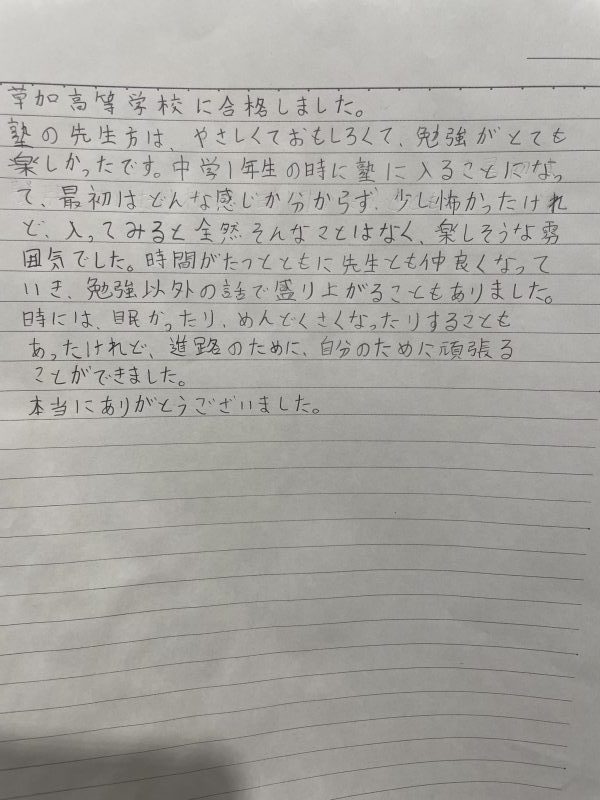 草加高等学校に合格しました。
塾の先生方は、やさしくておもしろくて、勉強がとても
楽しかったです。中学1年生の時に塾に入ることになっ
て、最初はどんな感じか分からず、少し怖かったけれ
ど、入ってみると全然そんなことはなく、楽しそうな雰
囲気でした。時間がたつとともに先生とも仲良くなって
いき、勉強以外の話で盛り上がることもありました。
時には、眠かったり、めんどくさくなったりすることも
あったけれど、進路のために、自分のために頑張る
ことができました。
本当にありがとうございました。